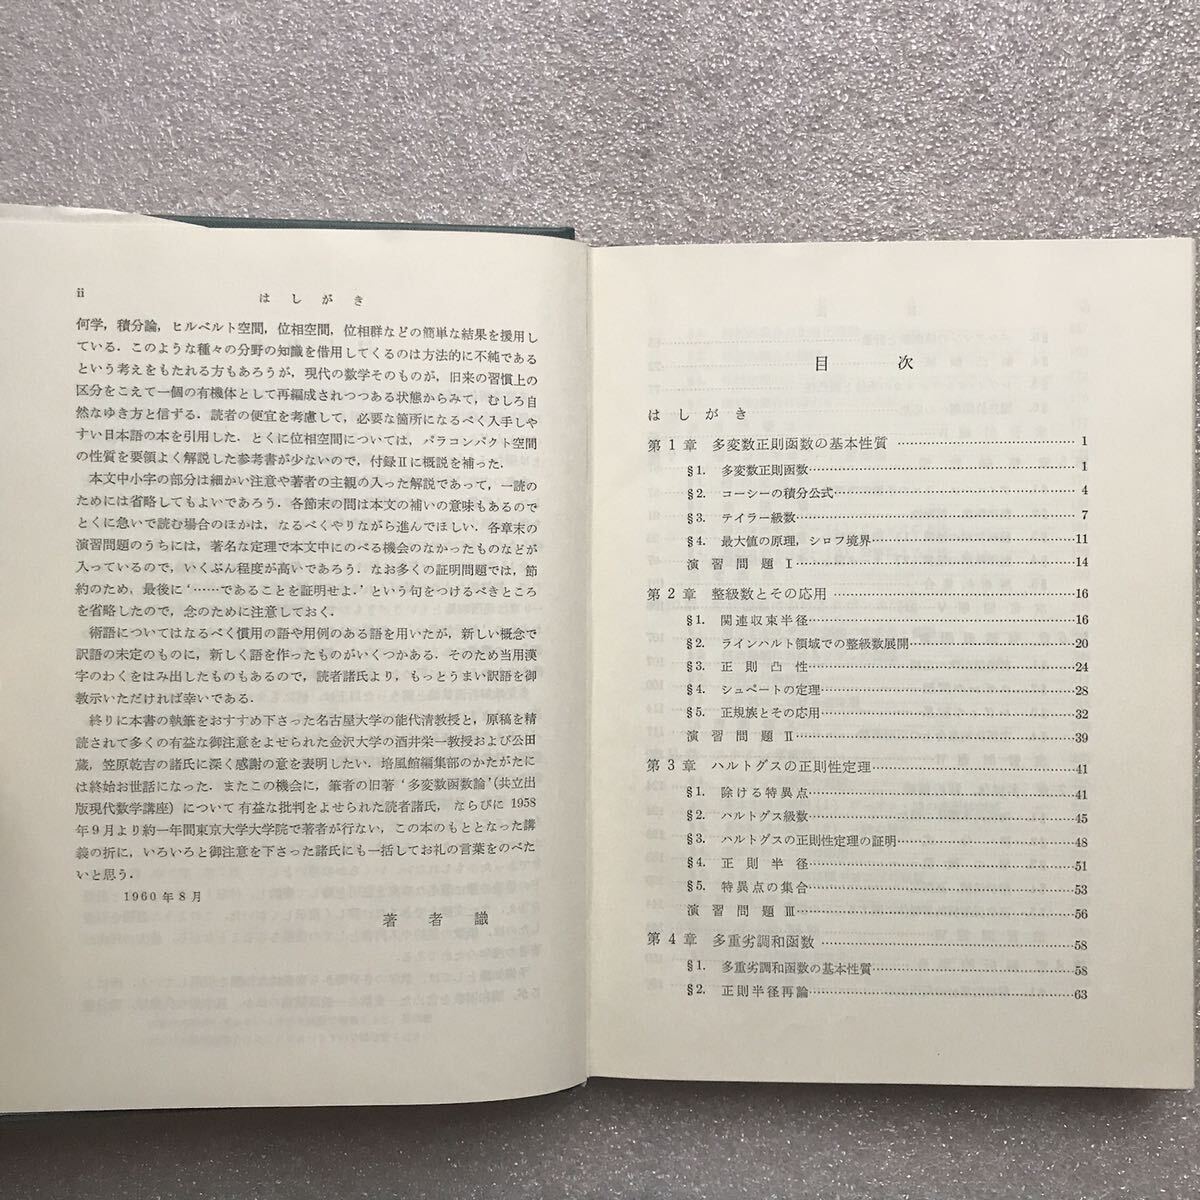 ii
はしがき
何学，積分論，ヒルベルト空間，位相空間，位相群などの簡単な結果を援用し
ている．このような種々の分野の知識を借用してくるのは方法的に不純である
という考えをもたれる方もあろうが，現代の数学そのものが，旧来の習慣上の
区分をこえて一個の有機体として再編成されつつある状態からみて，むしろ自
然なゆき方と信ずる．読者の便宜を考慮して，必要な箇所になるべく入手しや
すい日本語の本を引用した．とくに位相空間については，パラコンパクト空間
の性質を要領よく解説した参考書が少ないので，付録Ⅱに概説を補った．
本文中小字の部分は細かい注意や著者の主観の入った解説であって，一読の
ためには省略してもよいであろう．各節末の問は本文の補いの意味もあるので
とくに急いで読む場合のほかは，なるべくやりながら進んでほしい．各章末の
演習問題のうちには，著名な定理で本文中にのべる機会のなかったものなどが
入っているので，いくぶん程度が高いであろう．なお多くの証明問題では，節
約のため，最後に‘……であることを証明せよ．’という句をつけるべきところ
を省略したので，念のために注意しておく．
術語についてはなるべく慣用の語や用例のある語を用いたが，新しい概念で
訳語の未定のものに，新しく語を作ったものがいくつかある．そのため当用漢
字のわくをはみ出したものもあるので，読者諸氏より，もっとうまい訳語を御
教示いただければ幸いである．
終りに本書の執筆をおすすめ下さった名古屋大学の能代清教授と，原稿を精
読されて多くの有益な御注意をよせられた金沢大学の酒井栄一教授および公田
蔵，笠原乾吉の諸氏に深く感謝の意を表明したい．培風館編集部のかたがたに
は終始お世話になった．またこの機会に，筆者の旧著‘多変数函数論’(共立出
版現代数学講座)について有益な批判をよせられた読者諸氏，ならびに 1958
年9月より約一年間東京大学大学院で著者が行ない，この本のもととなった講
義の折に，いろいろと御注意を下さった諸氏にも一括してお礼の言葉をのべた
いと思う．
1960年8月
著者識
目次
はしがき
第1章 多変数正則函数の基本性質……………………1
§1. 多変数正則函数……………………1
§2. コーシーの積分公式……………………4
§3. テイラー級数……………………7
§4. 最大値の原理，シロフ境界……………………11
演習問題Ⅰ……………………14
第2章 整級数とその応用……………………16
§1. 関連収束半径……………………16
§2. ラインハルト領域での整級数展開……………………20
§3. 正則凸性……………………24
§4. シュペートの定理……………………28
§5. 正規族とその応用……………………32
演習問題Ⅱ……………………39
第3章 ハルトグスの正則性定理……………………41
§1. 除ける特異点……………………41
§2. ハルトグス級数……………………45
§3. ハルトグスの正則性定理の証明……………………48
§4. 正則半径……………………51
§5. 特異点の集合……………………53
演習問題Ⅲ……………………56
第4章 多重劣調和函数……………………58
§1. 多重劣調和函数の基本性質……………………58
§2. 正則半径再論……………………63